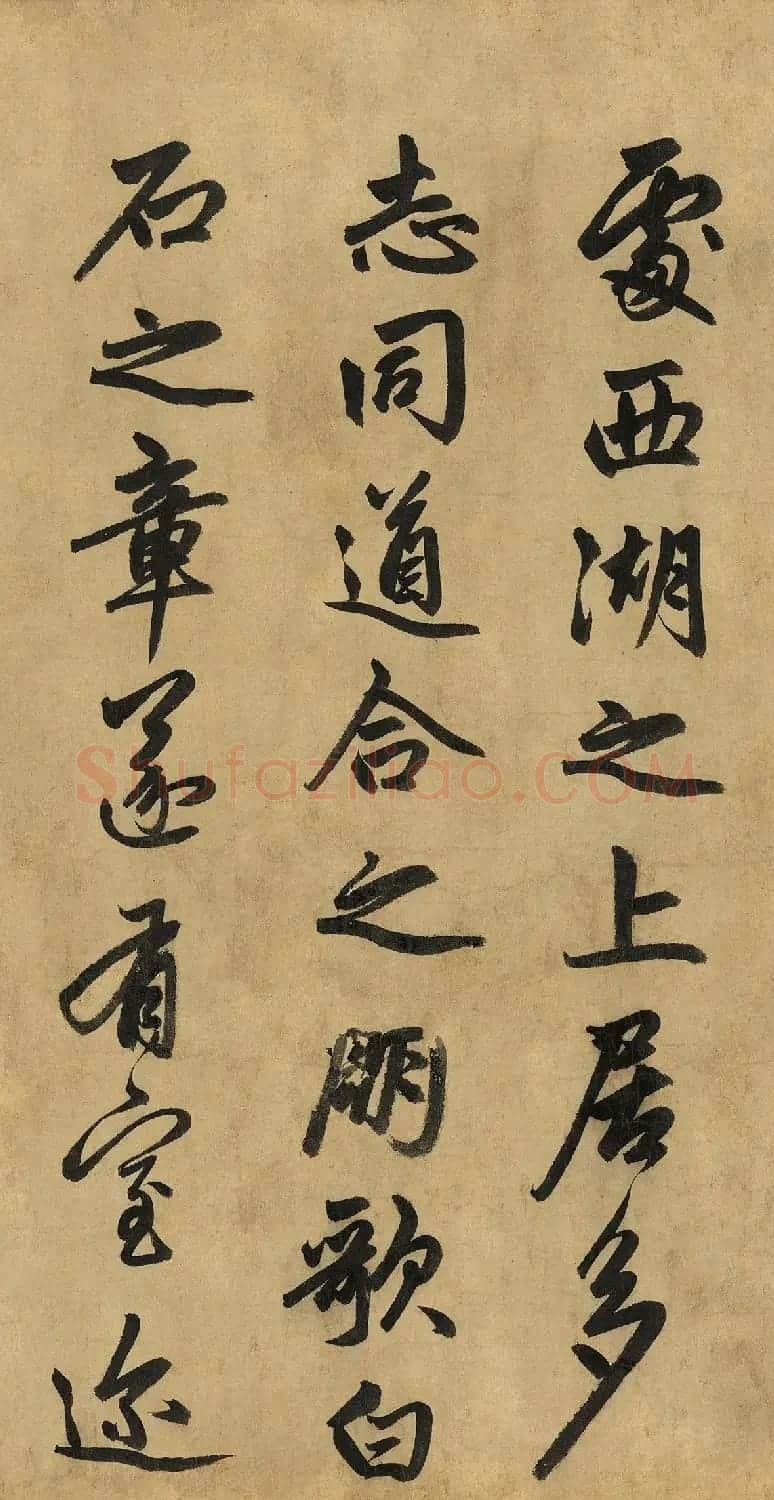 處西湖之上居多
志同道合之朋歌白
石之章遂有室迩
Shufaziliao.COM